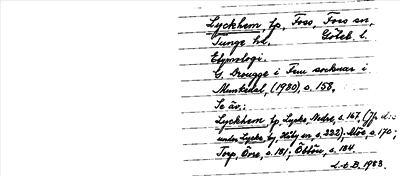 Lyckhem, tp, Foss, Foss sn,
Tunge hd. Göteb. l.
Etymologi.
G. Drougge i Fem socknar i
Munkedal, (1980), s. 158.
Se äv.:
Lyckhem, tp, Lycke, Nedre, s. 167, (Jfr d:o
under Lycke, by, Håby sn, s. 232); Moe, s. 170;
Torp, Öne, s. 181; Öbbön, s. 184
L-t B. 1983.